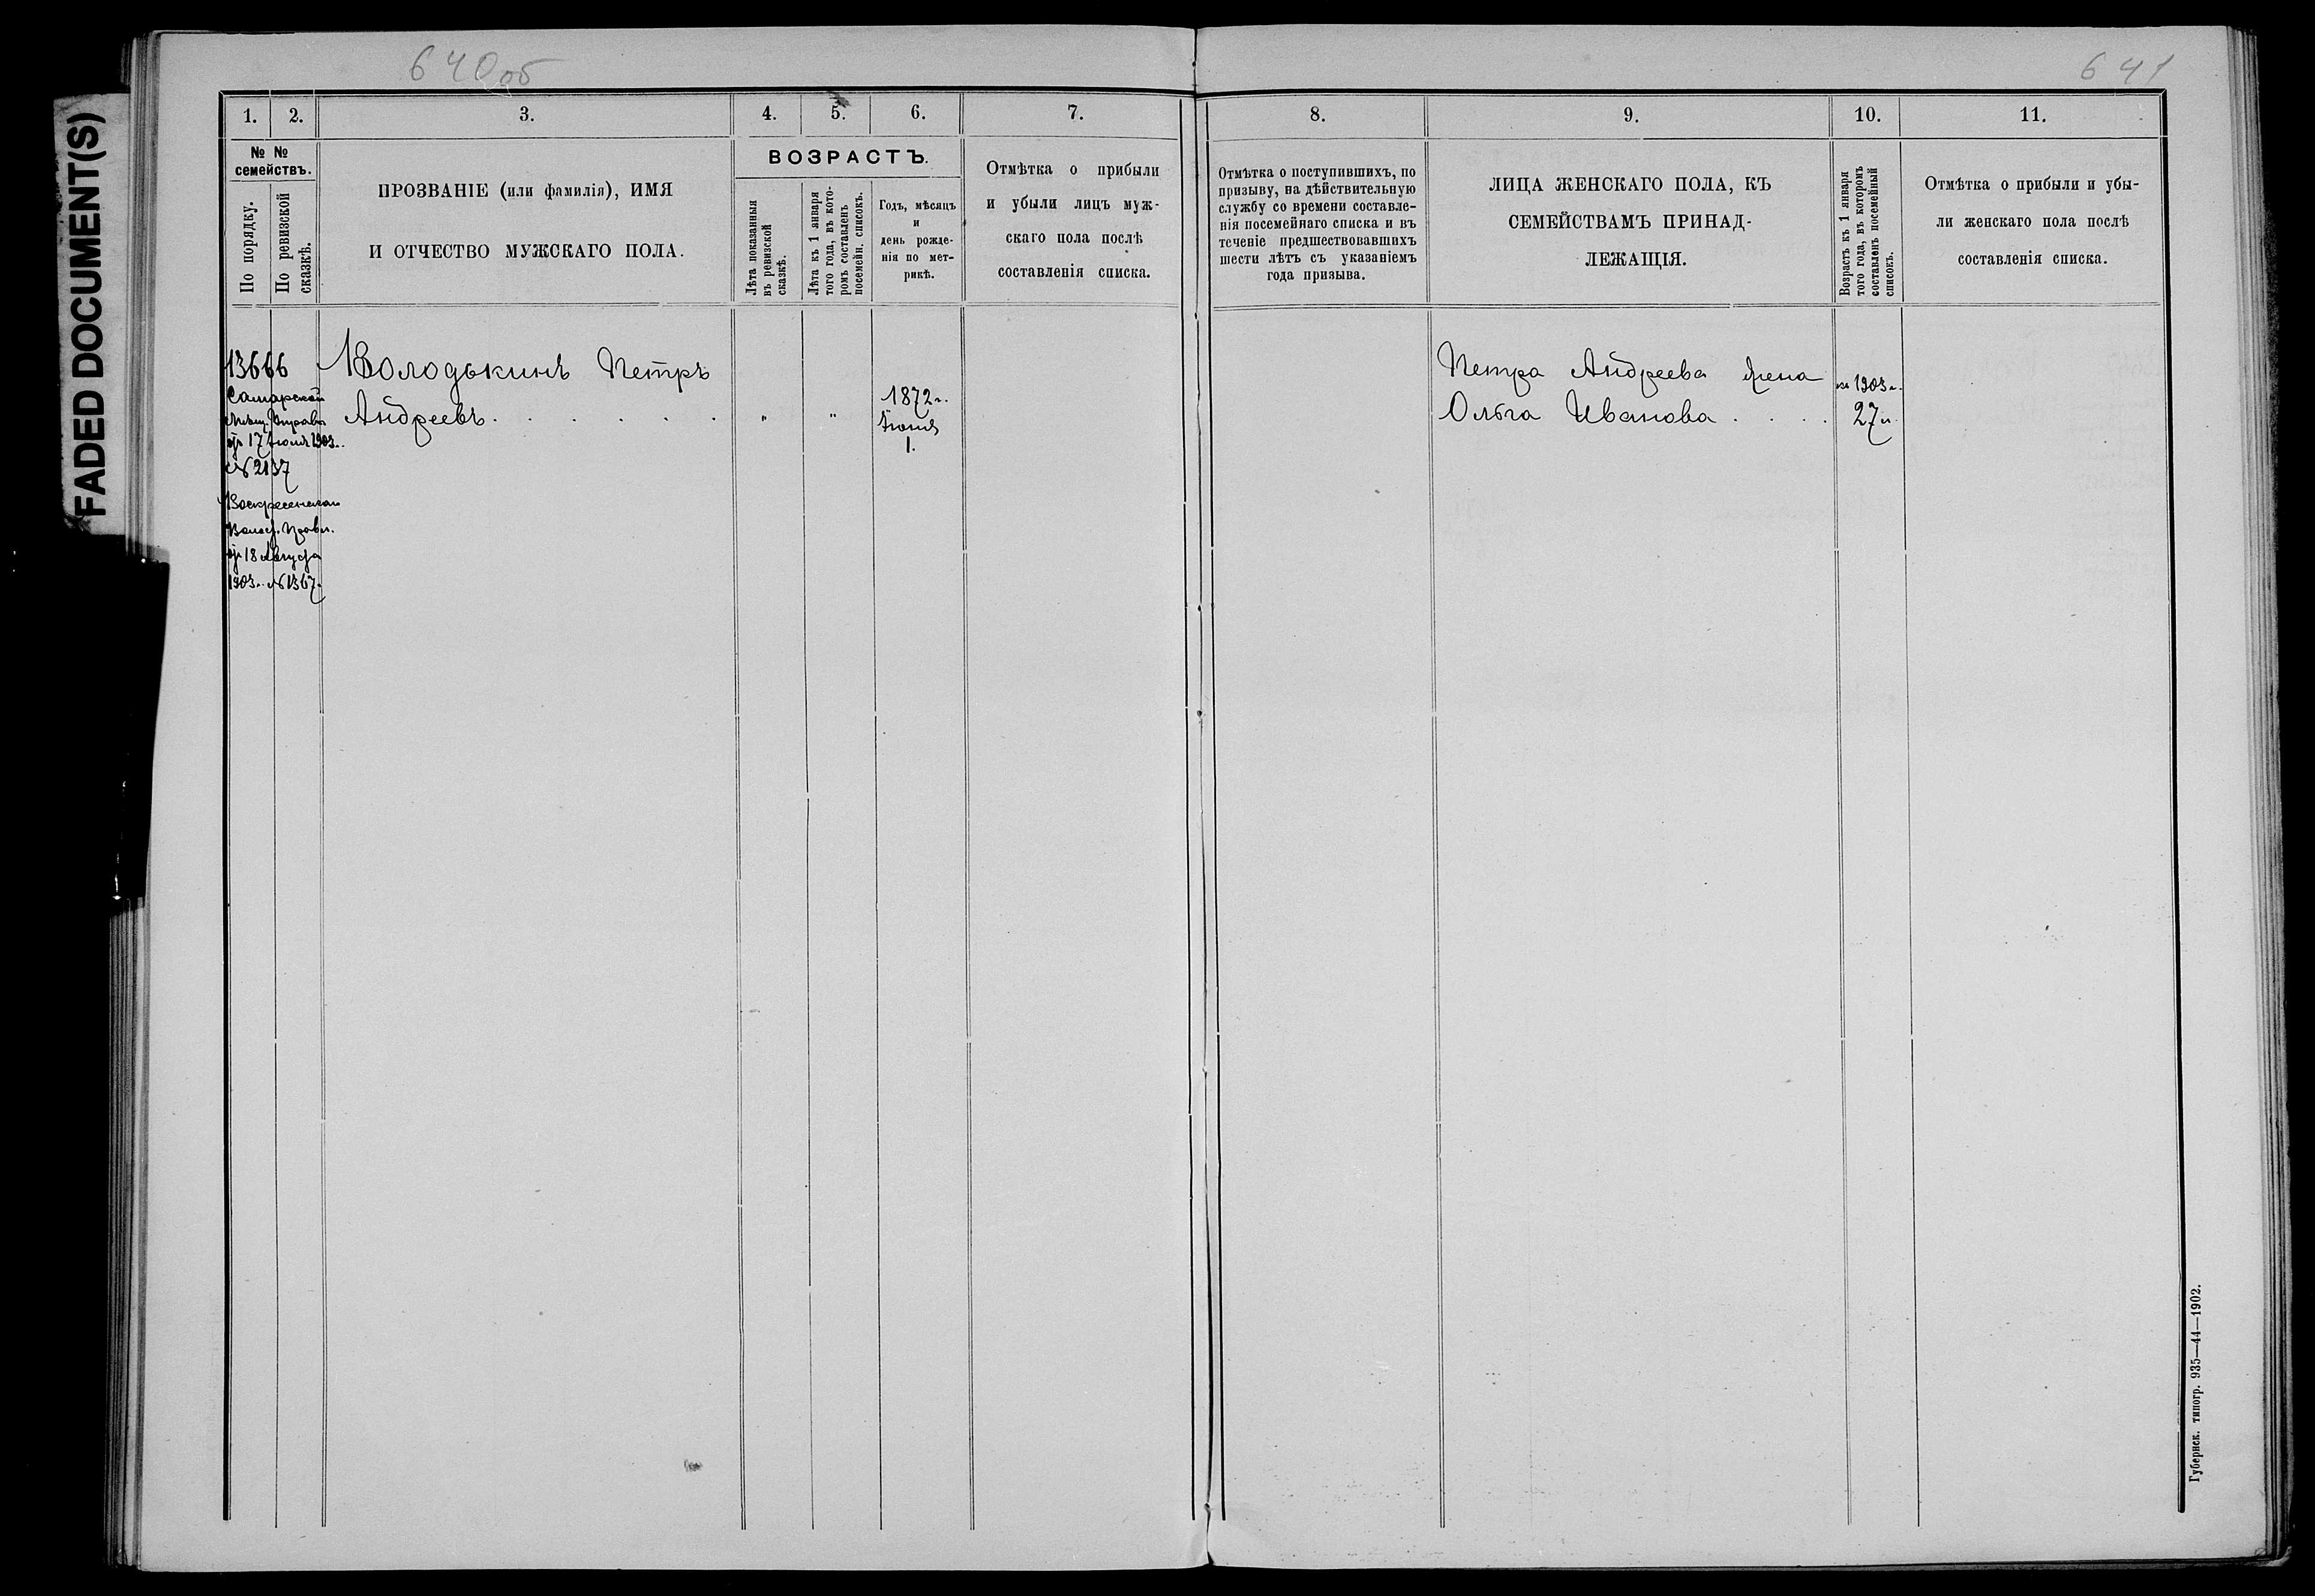 FADED DOCUMENT(S)
640об
641
1.
2.
3.
4.
5.
6.
7.
№ №
семействъ.
По порядку.
По ревизской
сказкѣ.
ПРОЗВАНІЕ (или фамилія), ИМЯ
И ОТЧЕСТВО МУЖСКАГО ПОЛА.
ВОЗРАСТЪ.
Лѣта показанныя
въ ревизской
сказкѣ.
Лѣта къ 1 января
того года, въ кото-
ромъ составленъ
посемейн. списокъ.
Годъ, мѣсяцъ
и
день рожде-
нія по мет-
рикѣ.
Отмѣтка о прибыли
и убыли лицъ муж-
скаго пола послѣ
составленія списка.
13666
Самарской
Мѣщ. Управы
от 17 Іюля 1903 г.
№ 2137
Воскресенскаго
Волост. Правл.
от 18 Августа
1903 г. № 1367
Володькинъ Петръ
Андреевъ . . . . . .
" "
1872 г.
Іюня
1.
8.
9.
10.
11.
Отмѣтка о поступившихъ, по
призыву, на дѣйствительную
службу со времени составле-
нія посемейнаго списка и въ
теченіе предшествовавшихъ
шести лѣтъ съ указаніемъ
года призыва.
ЛИЦА ЖЕНСКАГО ПОЛА, КЪ
СЕМЕЙСТВАМЪ ПРИНАД-
ЛЕЖАЩІЯ.
Возрастъ къ 1 января
того года, въ которомъ
составленъ посемейный
списокъ.
Отмѣтка о прибыли и убы-
ли женскаго пола послѣ
составленія списка.
Петра Андреева жена
Ольга Иванова . . . .
1903 г.
27 л.
Губернск. типогр. 935—44—1902.